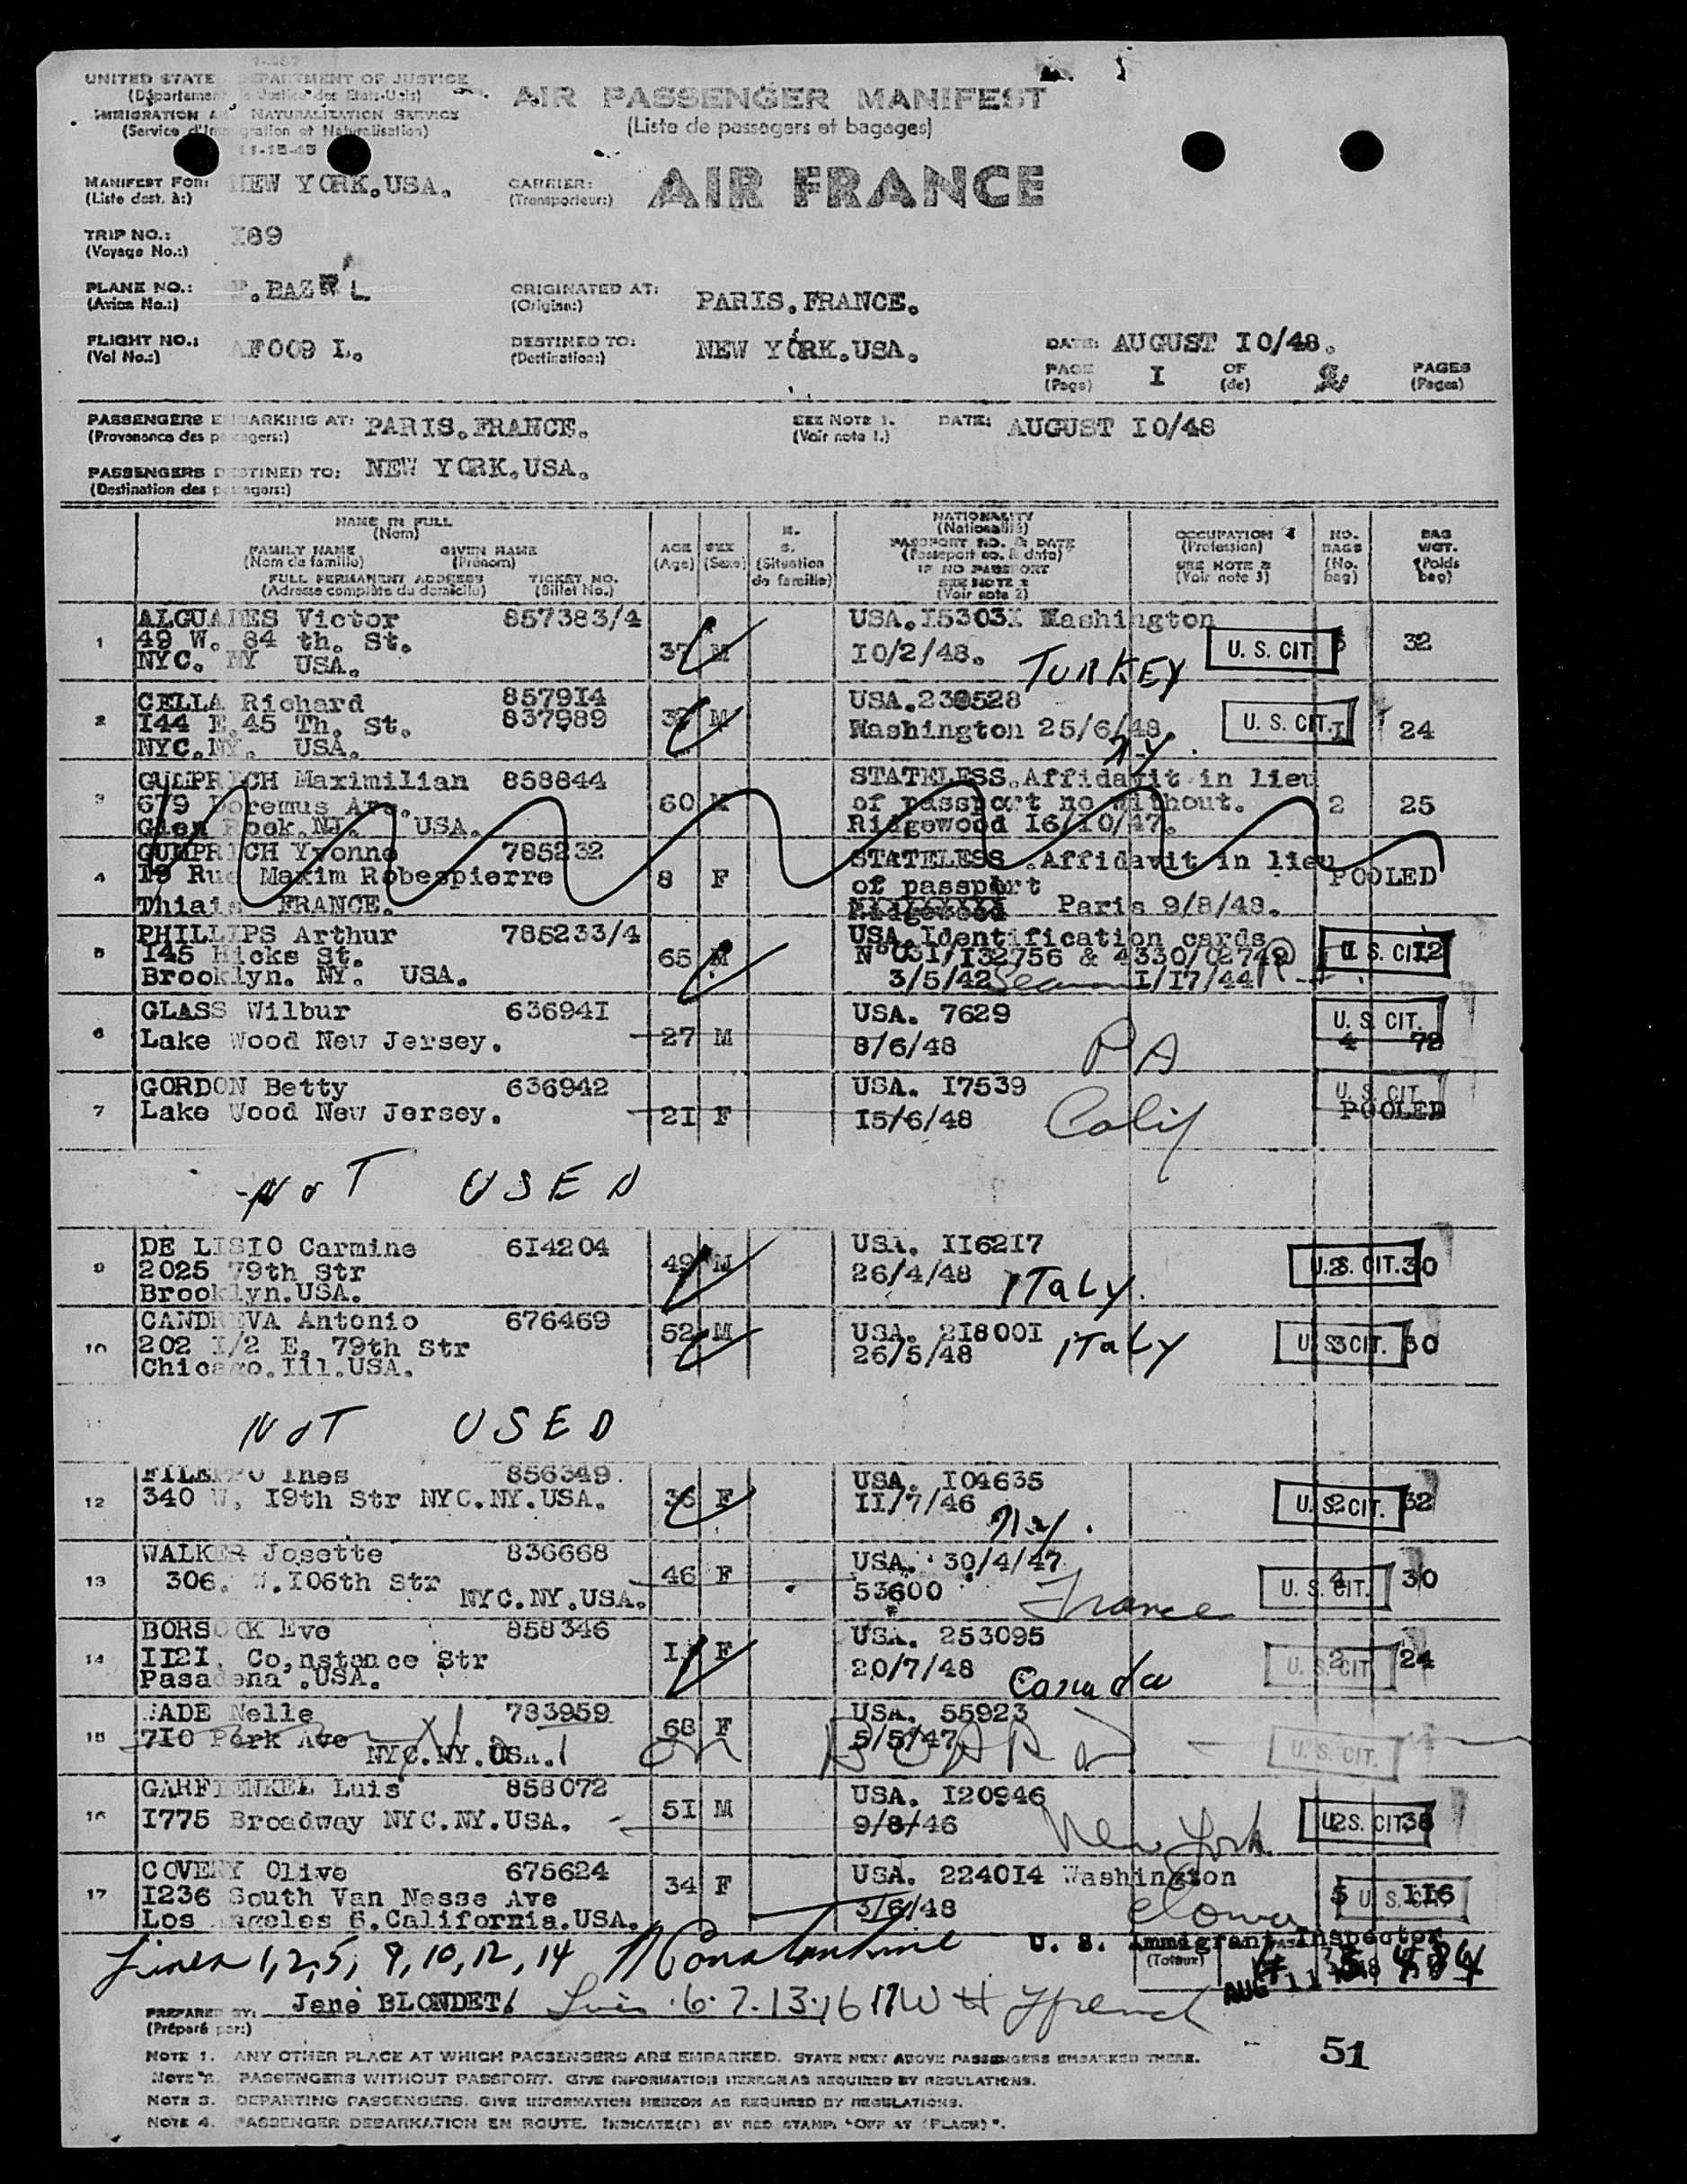 UNITED STATE DEPARTMENT OF JUSTICE
(Département de Justice des Etats-Unis)
IMMIGRATION AND NATURALIZATION SERVICE
(Service d'Immigration et Naturalisation)
AIR PASSENGER MANIFEST
(Liste de passagers et bagages)
MANIFEST FOR: NEW YORK.USA.
(Liste dest. à:)
CARRIER: AIR FRANCE
(Transporteur:)
TRIP NO.: I89
(Voyage No.:)
PLANE NO.: F.BAZ L
(Avion No.:)
ORIGINATED AT: PARIS.FRANCE.
(Origine:)
FLIGHT NO.: AF009 I.
(Vol No.:)
DESTINED TO: NEW YORK.USA.
(Destination:)
DATE: AUGUST I0/48.
PAGE I OF 2 PAGES
(Page) (de) (Pages)
PASSENGERS EMBARKING AT: PARIS.FRANCE.
(Provenance des passagers:)
SEE NOTE 1. DATE: AUGUST I0/48
(Voir note 1.)
PASSENGERS DESTINED TO: NEW YORK.USA.
(Destination des passagers:)
NAME IN FULL
(Nom)
FAMILY NAME GIVEN NAME
(Nom de famille) (Prénom)
FULL PERMANENT ADDRESS TICKET NO.
(Adresse complète du domicile) (Billet No.)
AGE
(Age)
SEX
(Sexe)
M.
S.
(Situation
de famille)
NATIONALITY
(Nationalité)
PASSPORT NO. & DATE
(Passeport no. & date)
IF NO PASSPORT
SEE NOTE 2
(Voir note 2)
OCCUPATION
(Profession)
SEE NOTE 3
(Voir note 3)
NO.
BAGS
(No.
bag)
BAG
WGT.
(Poids
bag)
1 ALGUADES Victor 857383/4 37 M USA.I5303I Washington
49 W. 84 th. St. I0/2/48. TURKEY U. S. CIT 32
NYC. NY USA.
2 CELLA Richard 857914 M USA.230528
I44 E.45 Th. St. 837989 Washington 25/6/48. U. S. CIT. I 24
NYC.NY. USA. NY.
3 GUMPRICH Maximilian 858844 60 M STATELESS.Affidavit in lieu
679 Doremus Ave. of passport no without. 2 25
Glen Rock.NJ. USA. Ridgewood I6/I0/47.
4 GUMPRICH Yvonne 785232 8 F STATELESS .Affidavit in lieu
19 Rue Maxim Robespierre of passport POOLED
Thiais FRANCE. Ridgewood Paris 9/8/48.
5 PHILLIPS Arthur 785233/4 65 M USA.Identification cards
I45 Hicks St. N°031/I32756 & 4330/02749 U S. CIT I2
Brooklyn. NY. USA. 3/5/42 I/I7/44
6 GLASS Wilbur 63694I 27 M USA. 7629 U. S. CIT.
Lake Wood New Jersey. 8/6/48 PA 4 72
7 GORDON Betty 636942 2I F USA. I7539 U. S. CIT
Lake Wood New Jersey. I5/6/48 Calif POOLED
NOT USED
9 DE LISIO Carmine 6I4204 49 M USA. II62I7
2025 79th Str 26/4/48 ITaLy. U.S. CIT. 30
Brooklyn.USA.
10 CANDREVA Antonio 676469 52 M USA. 2I800I
202 I/2 E. 79th Str 26/5/48 ITaLy U S CIT. 3
Chicago.Ill.USA.
11 NOT USED
12 FILEPPO Ines 856349. F USA. I04635
340 W, I9th Str NYC.NY.USA. II/7/46 NY. U. S. CIT. 2 32
13 WALKER Josette 836668 46 F USA. 30/4/47
306. W.I06th Str 53600 France U. S. CIT. 4 30
NYC.NY.USA.
14 BORSOCK Eve 858346 F USA. 253095
II2I. Co,nstance Str 20/7/48 Canada U. S. CIT 2 24
Pasadena .USA.
15 Nelle 783959 68 F USA. 55923
7I0 Park Ave 5/5/47 U. S. CIT.
NYC.NY.USA. on BOARD
16 GARFIENKEL Luis 858072 5I M USA. I20946
I775 Broadway NYC.NY.USA. 9/8/46 New York U S. CIT 2 38
17 COVENY Olive 675624 34 F USA. 2240I4 Washington
I236 South Van Nesse Ave 3/6/48 Iowa 5 U S. CIT II6
Los Angeles 6.California.USA.
Lines 1, 2, 5, 9, 10, 12, 14 Constantine
U. S. Immigrant Inspector
(Totaux)
AUG 11 1948
PREPARED BY: Jane BLONDET
(Préparé par:)
6. 7. 13. 16 17
NOTE 1. ANY OTHER PLACE AT WHICH PASSENGERS ARE EMBARKED. STATE NEXT ABOVE PASSENGERS EMBARKED THERE.
51
NOTE 2. PASSENGERS WITHOUT PASSPORT. GIVE INFORMATION HEREON AS REQUIRED BY REGULATIONS.
NOTE 3. DEPARTING PASSENGERS. GIVE INFORMATION HEREON AS REQUIRED BY REGULATIONS.
NOTE 4. PASSENGER DEBARKATION EN ROUTE. INDICATE(D) BY RED STAMP: "OFF AT (PLACE)".